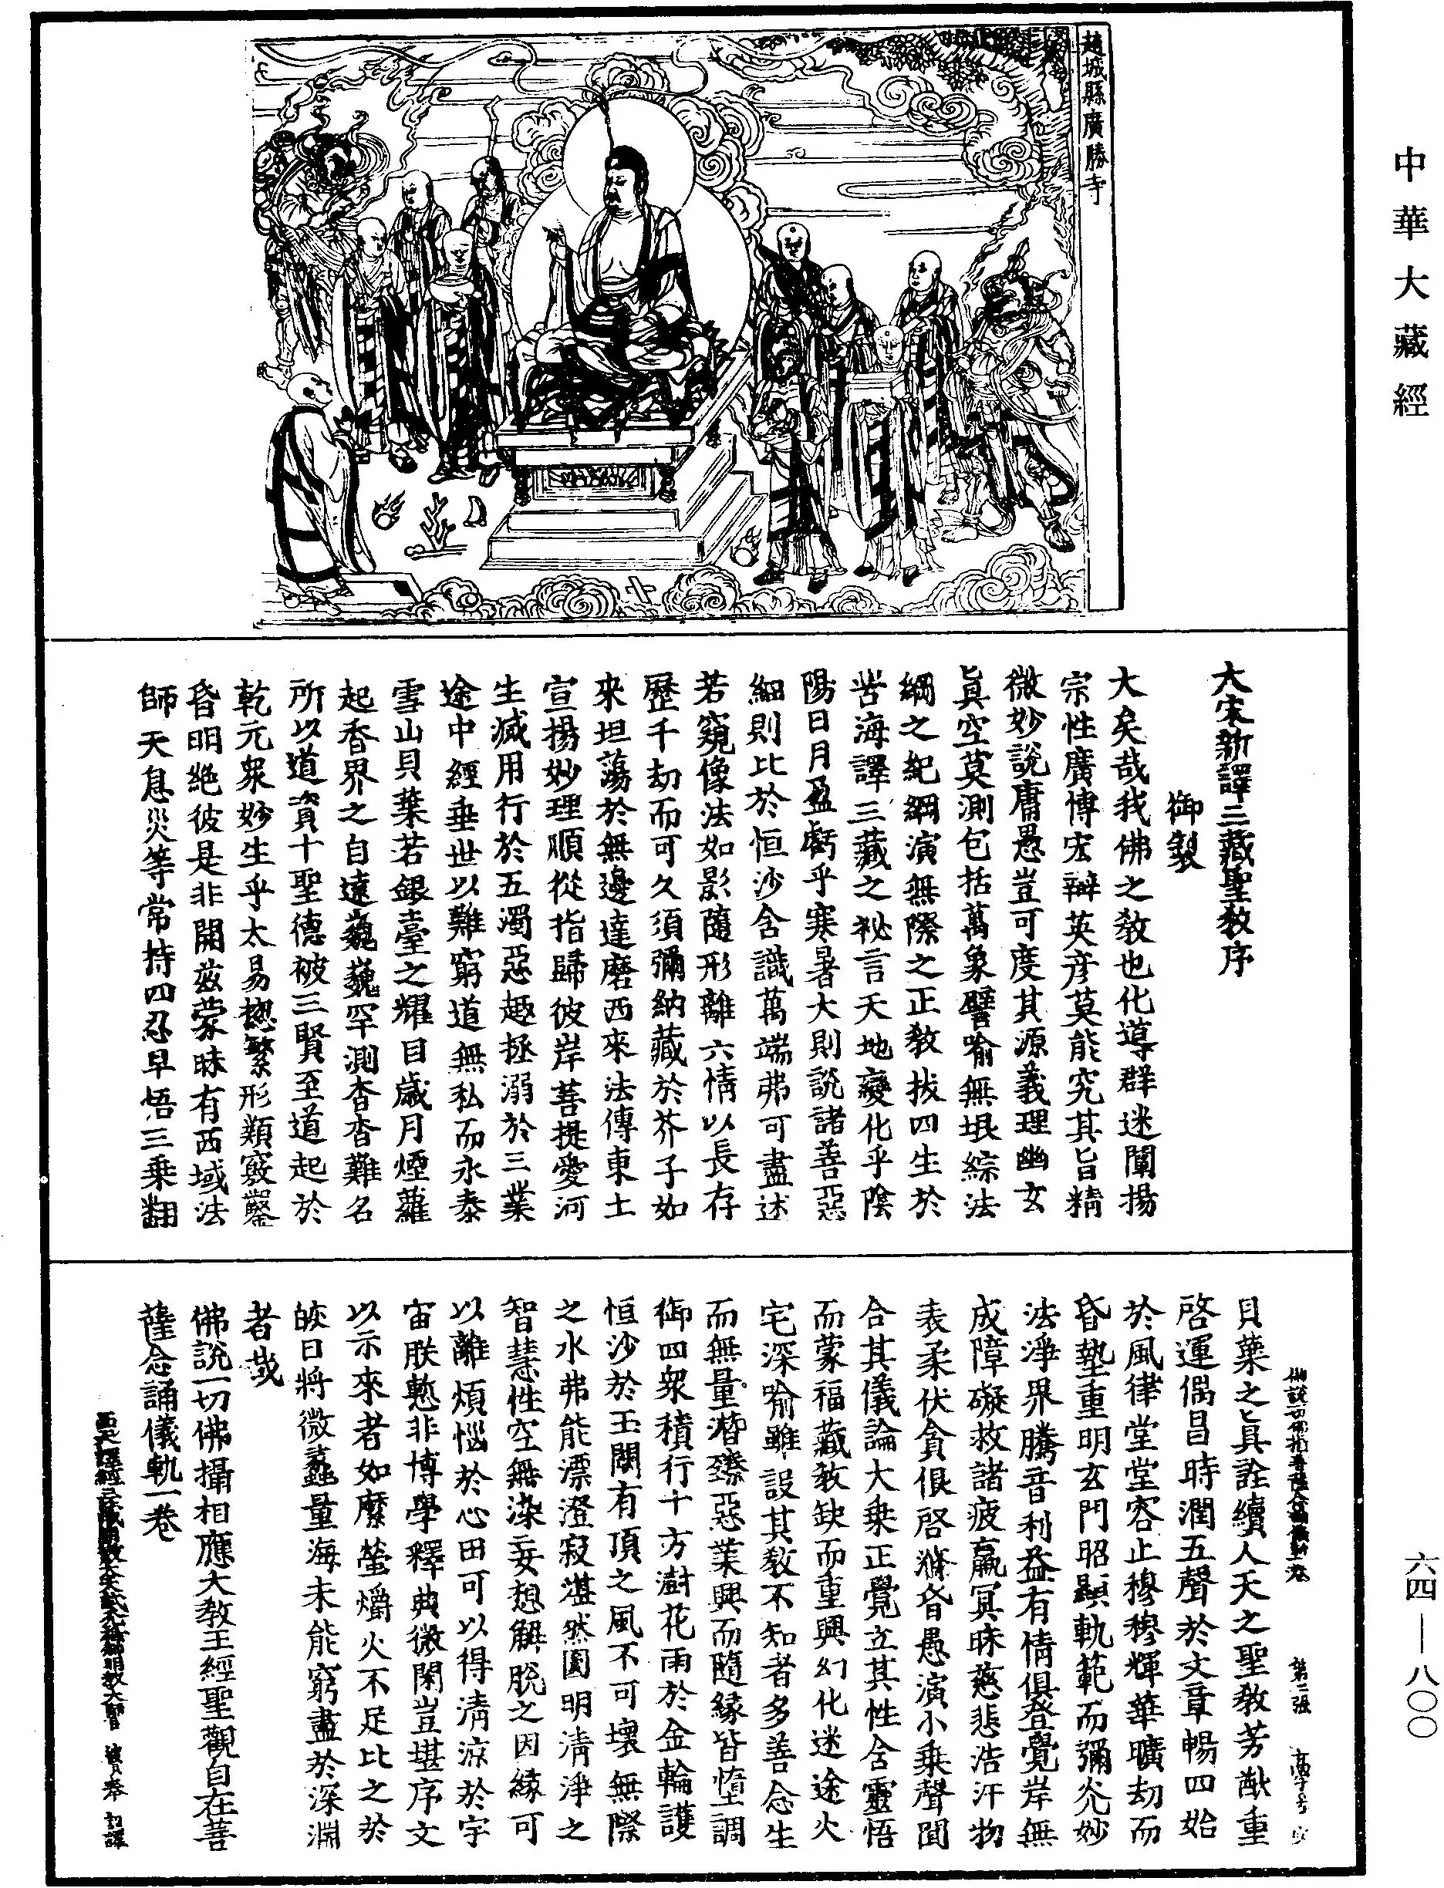 中華大藏經
趙城縣廣勝寺
大宋新譯三藏聖教序
御製
大矣哉我佛之教也化導群迷闡揚
宗性廣博宏辯英彦莫能究其旨精
微妙說庸愚豈可度其源義理幽玄
真空莫測包括萬象譬喻無垠綜法
綱之紀綱演無際之正教拔四生於
苦海譯三藏之祕言天地變化乎陰
陽日月盈虧乎寒暑大則說諸善惡
細則比於恒沙含識萬端弗可盡述
若窺像法如影隨形離六情以長存
歷千劫而可久須彌納藏於芥子如
來坦蕩於無邊達磨西來法傳東土
宣揚妙理順從指歸彼岸菩提愛河
生滅用行於五濁惡趣拯溺於三業
途中經垂世以難窮道無私而永泰
雪山貝葉若銀臺之耀目歲月煙蘿
起香界之自遠巍巍罕測杳杳難名
所以道資十聖德被三賢至道起於
乾元眾妙生乎太易揔繁形類竅鑿
昏明絶彼是非開兹蒙昧有西域法
師天息災等常持四忍早悟三乘翻
第二張
貝葉之真詮續人天之聖教芳猷重
啓運偶昌時潤五聲於文章暢四始
於風律堂堂容止穆穆輝華曠劫而
昏墊重明玄門昭顯軌範而彌光妙
法淨界騰音利益有情俱登覺岸無
成障礙救諸疲羸冥昧慈悲浩汗物
表柔伏貪很啓滌昏愚演小乘聲聞
合其儀論大乘正覺立其性含靈悟
而蒙福藏教缺而重興幻化迷途火
宅深喻雖設其教不知者多善念生
而無量潛臻惡業興而隨緣皆墮調
御四衆積行十方澍花雨於金輪護
恒沙於玉闕有頂之風不可壞無際
之水弗能漂澄寂湛然圓明清淨之
智慧性空無染妄想解脫之因緣可
以離煩惱於心田可以得清涼於宇
宙朕慙非博學釋典微閑豈堪序文
以示來者如縻螢爝火不足比之於
皎日將微蠡量海未能窮盡於深淵
者哉
佛說一切佛攝相應大教王經聖觀自在菩
薩念誦儀軌一卷
六四—八〇〇